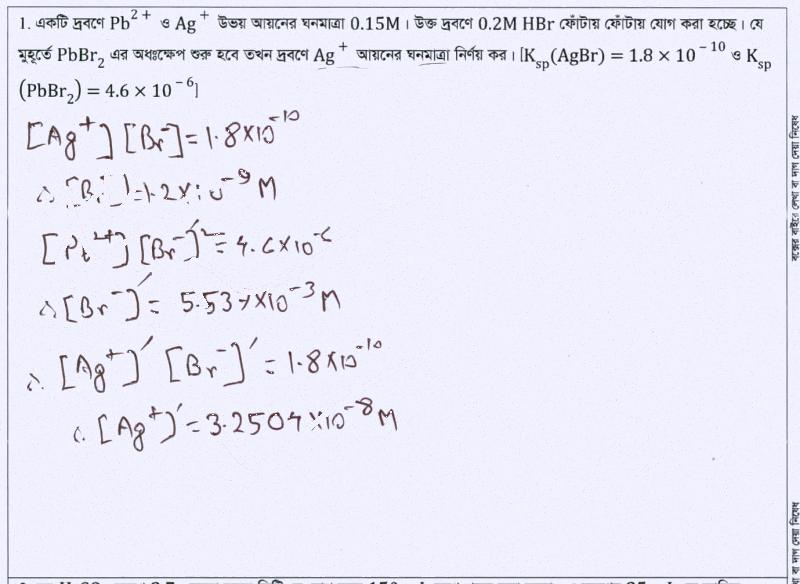 1. একটি দ্রবণে Pb²⁺ ও Ag⁺ উভয় আয়নের ঘনমাত্রা 0.15M । উক্ত দ্রবণে 0.2M HBr ফোঁটায় ফোঁটায় যোগ করা হচ্ছে । যে
মুহূর্তে PbBr₂ এর অধঃক্ষেপ শুরু হবে তখন দ্রবণে Ag⁺ আয়নের ঘনমাত্রা নির্ণয় কর । [Kₛₚ(AgBr) = 1.8 × 10⁻¹⁰ ও Kₛₚ
(PbBr₂) = 4.6 × 10⁻⁶]
[Ag⁺] [Br⁻] = 1.8×10⁻¹⁰
∴ [Br⁻] = 1.2×10⁻⁹ M
[Pb²⁺] [Br⁻]′² = 4.6×10⁻⁶
∴ [Br⁻]′ = 5.537×10⁻³ M
∴ [Ag⁺]′ [Br⁻]′ = 1.8×10⁻¹⁰
∴ [Ag⁺]′ = 3.2507×10⁻⁸ M
বক্সের বাইরে লেখা বা দাগ দেয়া নিষেধ
বা দাগ দেয়া নিষেধ